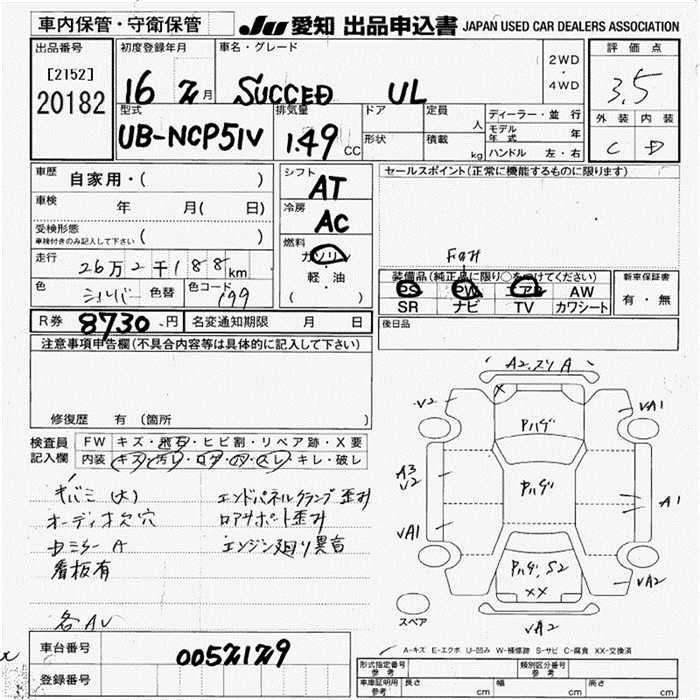 車内保管・守衛保管
JU 愛知 出品申込書 JAPAN USED CAR DEALERS ASSOCIATION
出品番号
[2152]
20182
初度登録年月
16 月
車名・グレード
SUCCED UL
2WD
・
4WD
評価点
3.5
外装 内装
C D
型式
UB-NCP51V
排気量
1.49 CC
ドア
形状
定員
人
積載
kg
ディーラー・並行
モデル年式 年
ハンドル 左・右
車歴 自家用・( )
車検 年 月( 日)
受検形態
車検付きのみ記入して下さい ( )
走行 26万2千188km
色 シルバー 色替 色コード 199
シフト
AT
冷房
AC
燃料
ガソリン
・
軽・油
( )
セールスポイント(正常に機能するものに限ります)
装備品(純正品に限り○をつけてください)
PS PW エアB AW
SR ナビ TV カワシート
新車保証書
有・無
R券 8730円 名変通知期限 月 日
後日品
注意事項申告欄(不具合内容等は具体的に記入して下さい)
修復歴 有(箇所 )
検査員記入欄
FW キズ・飛石・ヒビ割・リペア跡・X要
内装 キズ・汚レ・コゲ・穴・スレ・キレ・破レ
キバミ(大)
オーディオ欠穴
看板有
各AV
エンドパネルクランプ歪み
ロアサポート歪み
エンジン廻り異音
A2.スリ A
V2
VA1
Pハゲ
A3
V2
Pハゲ
A1
VA1
Pハゲ, S2
XX
VA2
VA2
スペア
A-キズ E-エクボ U-凹み W-補修跡 S-サビ C-腐食 XX-交換済
車台番号 0052129
登録番号
形式指定番号
参考
類別区分番号
参考
車庫証明用
参考
長さ cm 幅 cm 高さ cm